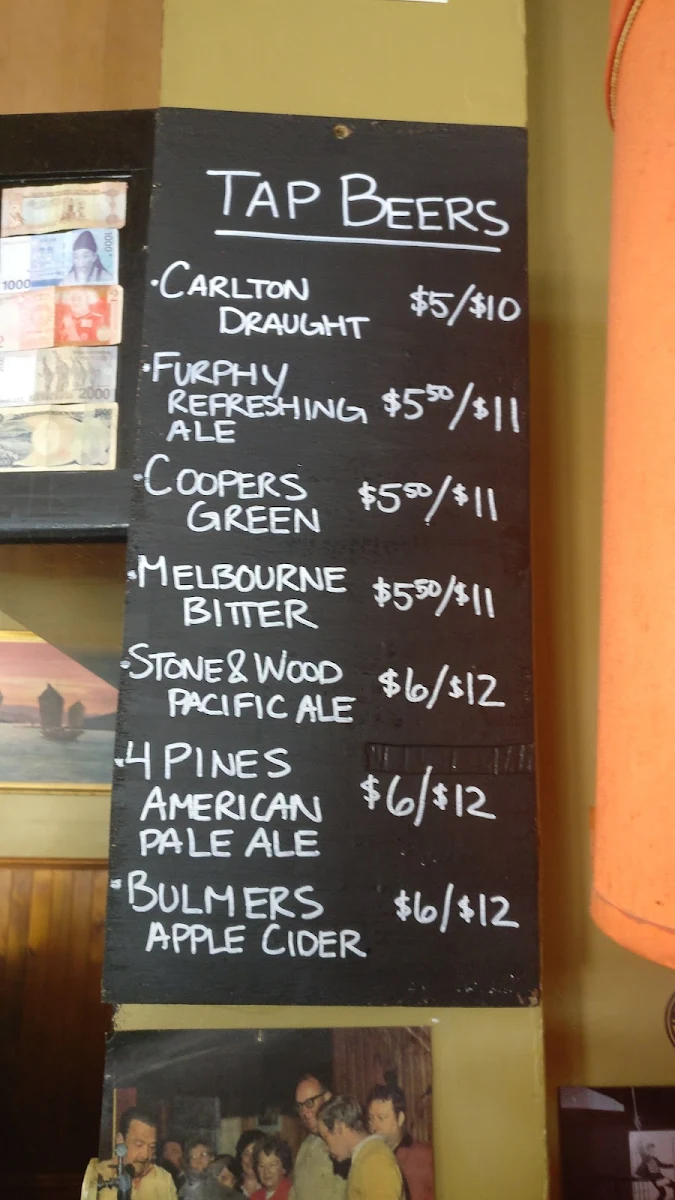 TAP BEERS
·CARLTON DRAUGHT $5/$10
·FURPHY REFRESHING ALE $5⁵⁰/$11
·COOPERS GREEN $5⁵⁰/$11
·MELBOURNE BITTER $5⁵⁰/$11
·STONE & WOOD PACIFIC ALE $6/$12
·4 PINES AMERICAN PALE ALE $6/$12
·BULMERS APPLE CIDER $6/$12
1000
1000
2
2
2000